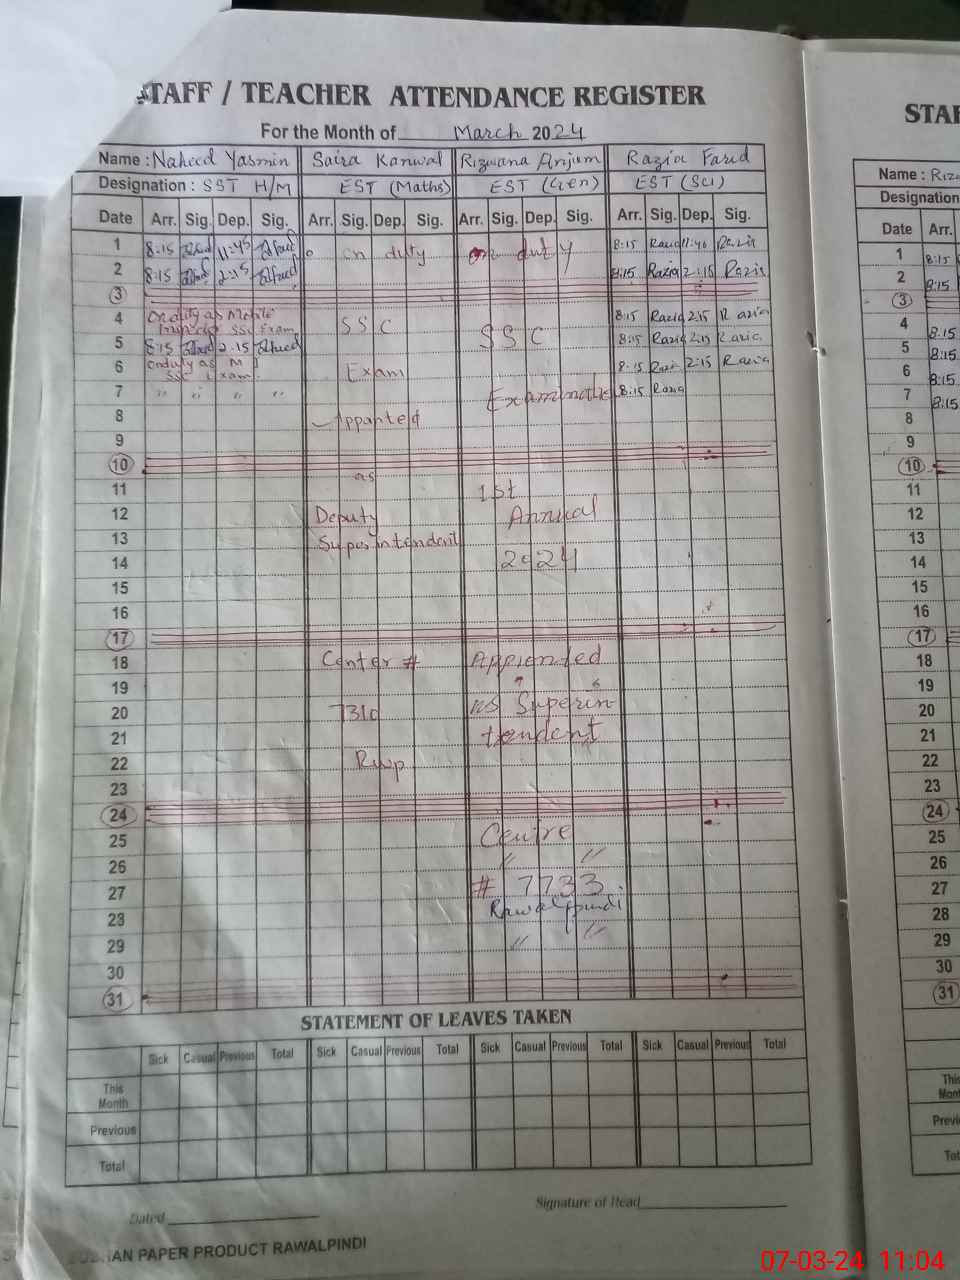 STAFF / TEACHER ATTENDANCE REGISTER
For the Month of March 2024
Name : Naheed Yasmin Saira Kanwal Rizwana Anjum Razia Farid
Designation : SST H/M EST (Maths) EST (Gen) EST (Sci)
Date Arr. Sig. Dep. Sig. Arr. Sig. Dep. Sig. Arr. Sig. Dep. Sig. Arr. Sig. Dep. Sig.
1 8:15 11:45 on duty on duty 8:15 Razia 11:40 Razia
2 8:15 2:15 8:15 Razia 2:15 Razia
3
4 On duty as Mobile Inspector SSC Exam SSC 8:15 Razia 2:15 Razia
5 8:15 2:15 SSC 8:15 Razia 2:15 Razia
6 On duty as M I SSC Exam. Exam 8:15 Razia 2:15 Razia
7 " " " " Examination 8:15 Razia
8 Appanted
9
10
as
11 1st
12 Deputy Annual
13 Superintendent
14 2024
15
16
17
18 Center # Appionted
19
20 7310 as Superin
21 tendent
22 Rwp
23
24
25 Centre
26 " "
27 # 7733.
Rawalpindi
28
29 " "
30
31
STATEMENT OF LEAVES TAKEN
Sick Casual Previous Total Sick Casual Previous Total Sick Casual Previous Total Sick Casual Previous Total
This Month
Previous
Total
Dated
Signature of Head
PAPER PRODUCT RAWALPINDI
STAF
Name : Riz
Designation
Date Arr.
1 8:15
2 8:15
3
4 8:15
5 8:15
6 8:15
7 8:15
8
9
10
11
12
13
14
15
16
17
18
19
20
21
22
23
24
25
26
27
28
29
30
31
This
Mont
Previ
Tot
07-03-24 11:04